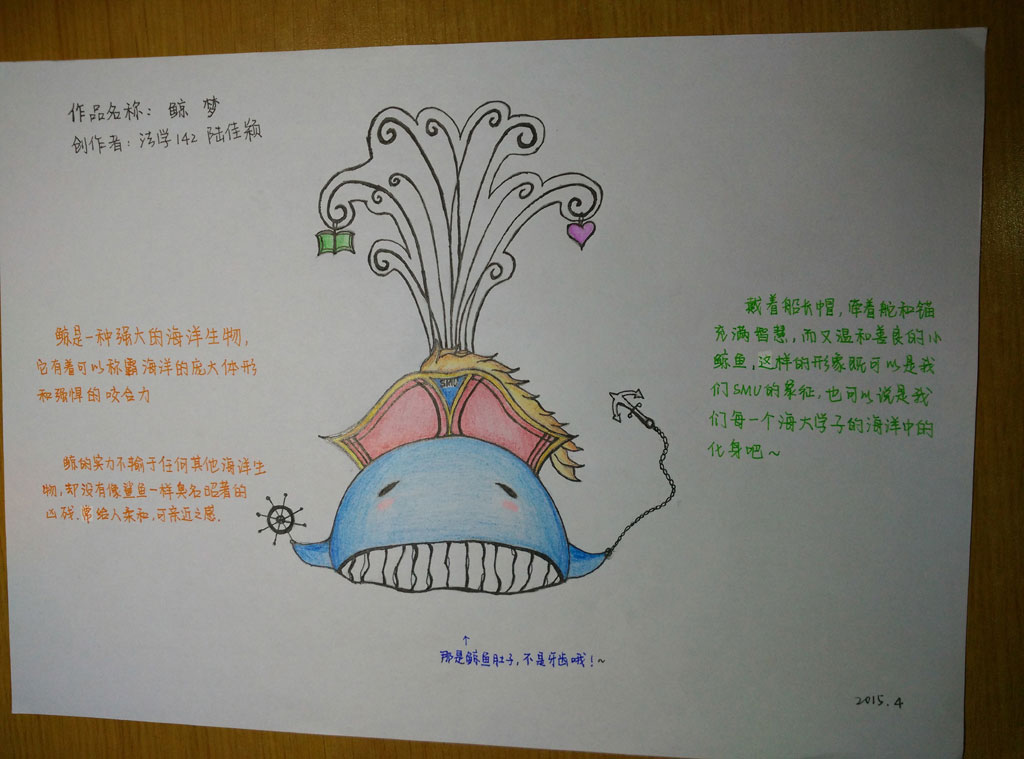 作品名称：鲸 梦
创作者：法学142 陆佳颖
SMU
鲸是一种强大的海洋生物，
它有着可以称霸海洋的庞大体形
和强悍的咬合力
鲸的实力不输于任何其他海洋生
物，却没有像鲨鱼一样臭名昭著的
凶残，常给人亲和，可亲近之感.
戴着船长帽，牵着舵和锚
充满智慧，而又温和善良的小
鲸鱼，这样的形象既可以是我
们SMU的象征，也可以说是我
们每一个海大学子的海洋中的
化身吧～
↑
那是鲸鱼肚子，不是牙齿哦！~
2015.4